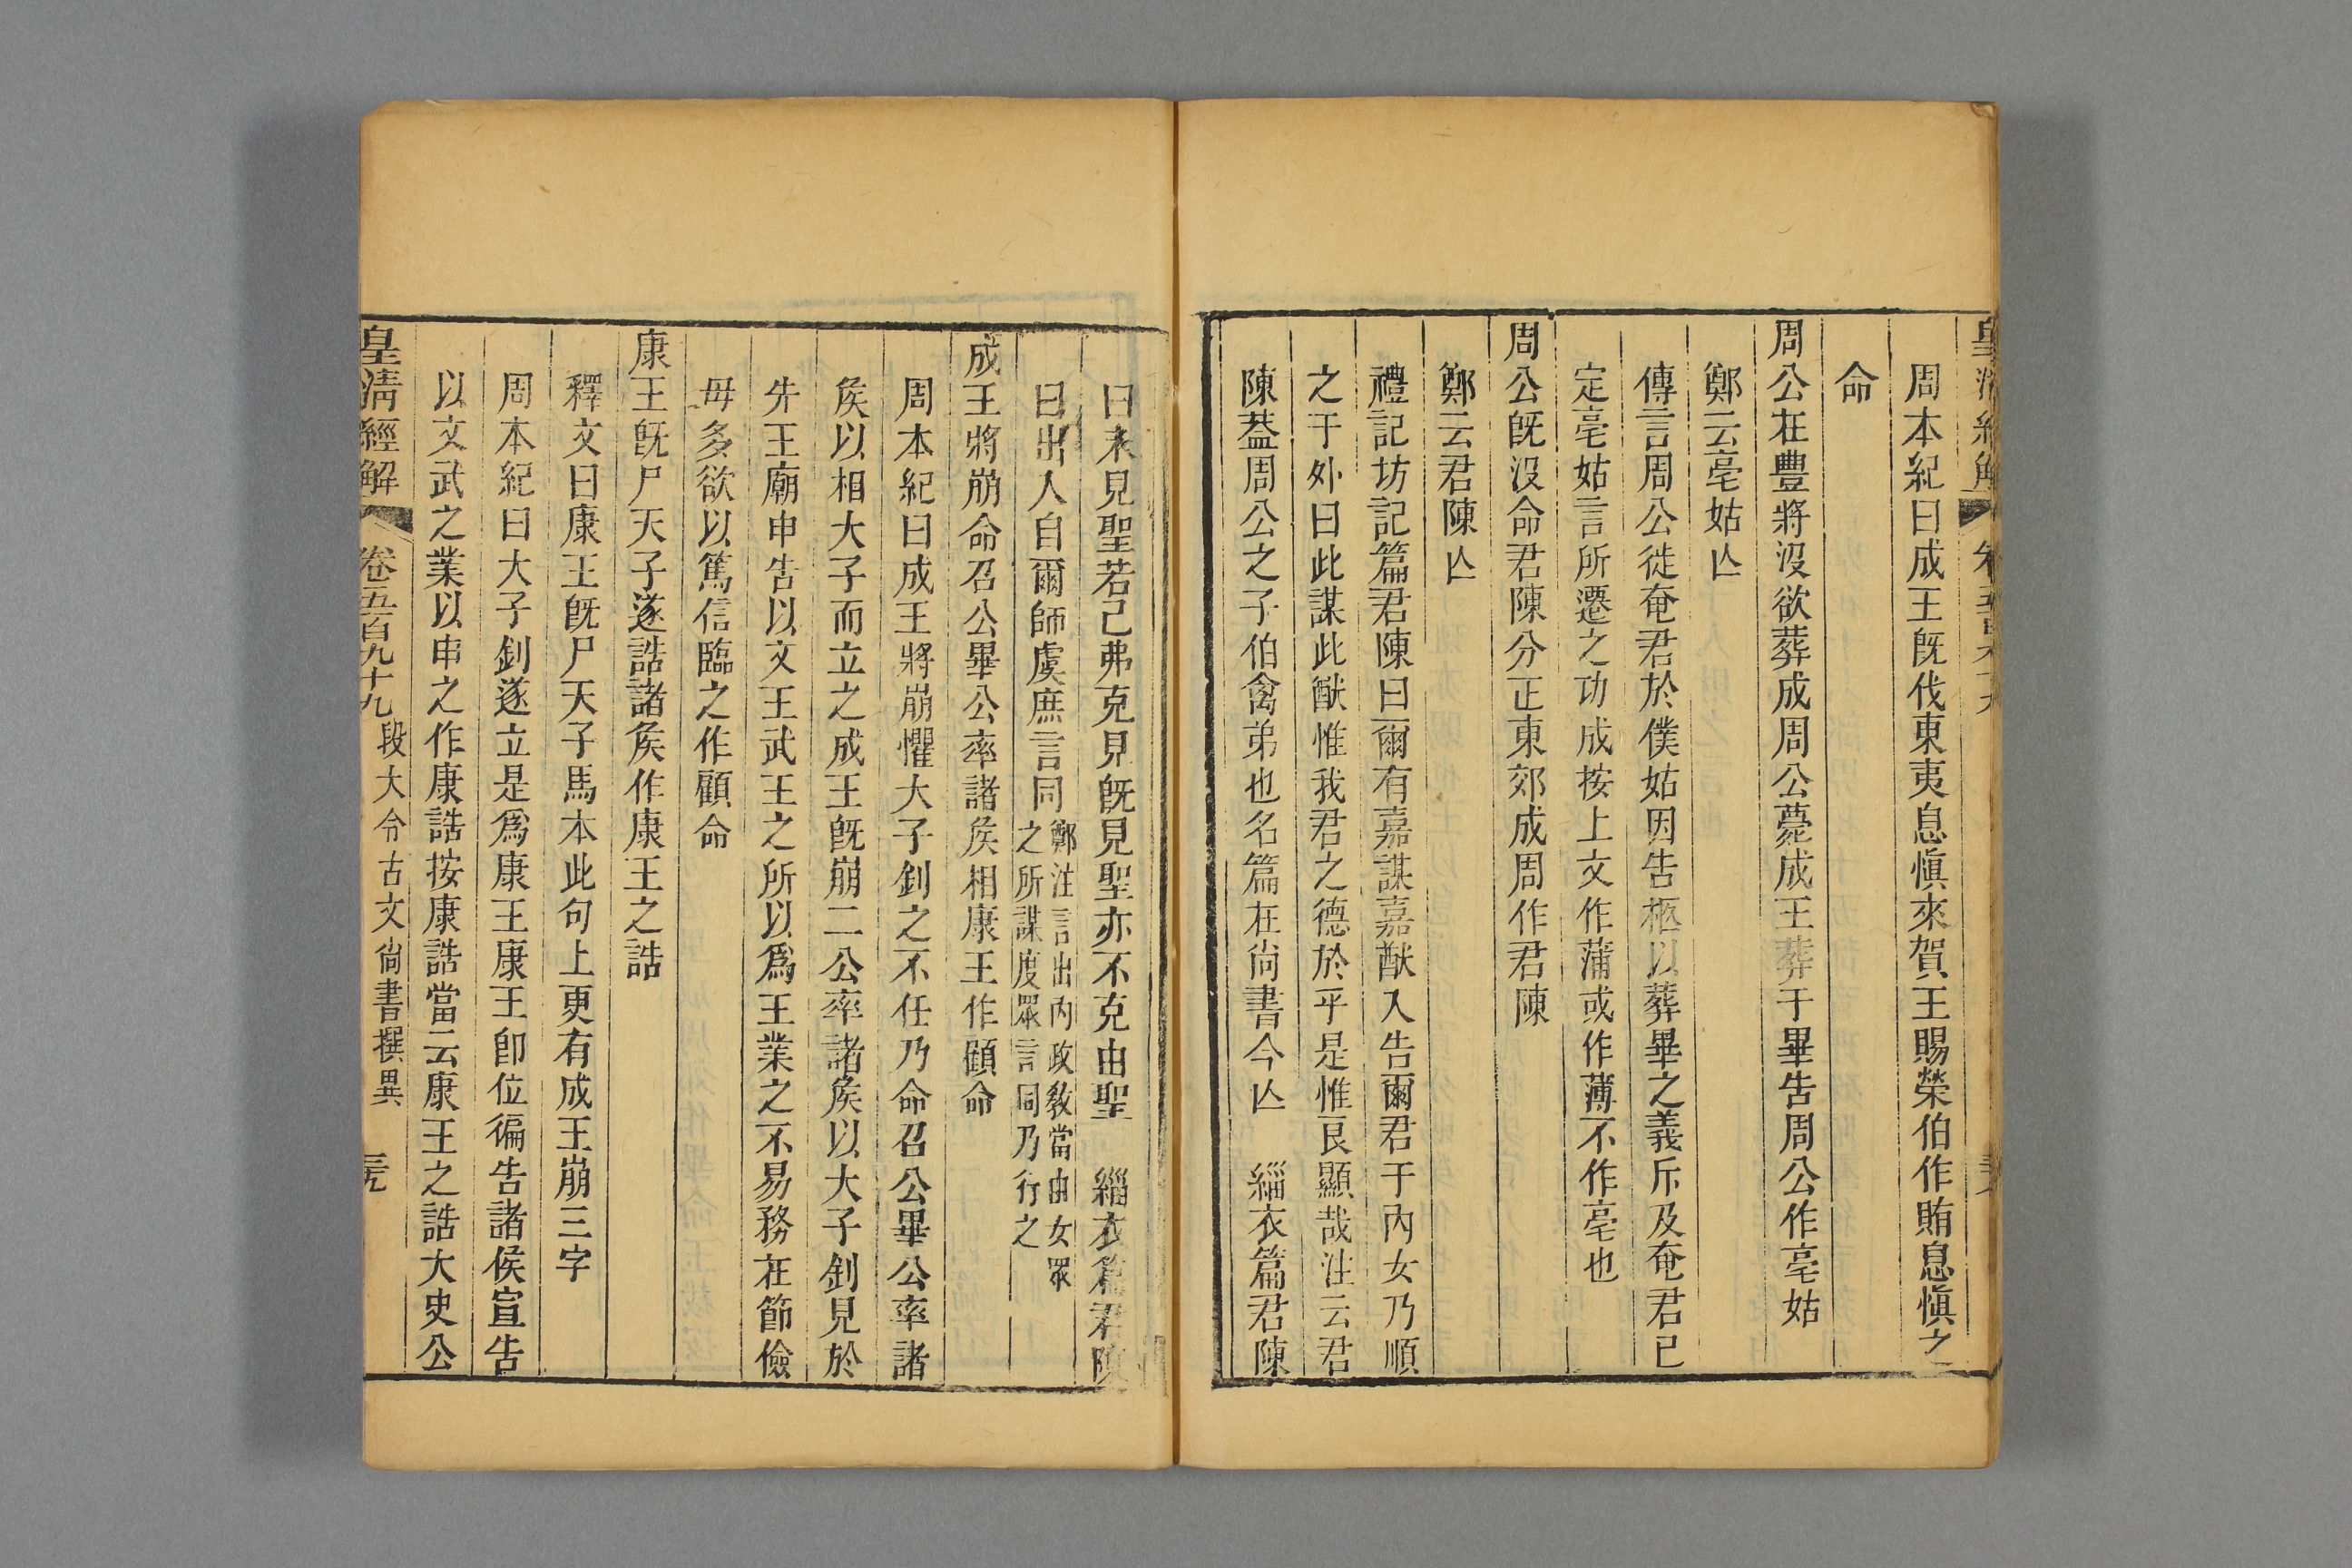 周本紀曰成王旣伐東夷息愼來賀王賜榮伯作賄息愼之
命
周公在豐將沒欲葬成周公薨成王葬于畢告周公作亳姑
鄭云亳姑亾
傳言周公徙奄君於僕姑因告柩以葬畢之義斥及奄君已
定亳姑言所遷之功成按上文作蒲或作薄不作亳也
周公旣沒命君陳分正東郊成周作君陳
鄭云君陳亾
禮記坊記篇君陳曰爾有嘉謀嘉猷入告爾君于內女乃順
之于外曰此謀此猷惟我君之德於乎是惟良顯哉注云君
陳葢周公之子伯禽弟也名篇在尚書今亾　緇衣篇君陳
曰未見聖若己弗克見旣見聖亦不克由聖　緇衣篇君陳
曰出入自爾師虞庶言同鄭注言出內政敎當由女眾之所謀度眾言同乃行之
成王將崩命召公畢公率諸矦相康王作顧命
周本紀曰成王將崩懼大子釗之不任乃命召公畢公率諸
矦以相大子而立之成王旣崩二公率諸矦以大子釗見於
先王廟申告以文王武王之所以爲王業之不易務在節儉
毋多欲以篤信臨之作顧命
康王旣尸天子遂誥諸矦作康王之誥
釋文曰康王旣尸天子馬本此句上更有成王崩三字
周本紀曰大子釗遂立是爲康王康王卽位徧告諸侯宣告
以文武之業以申之作康誥按康誥當云康王之誥大史公
皇淸經解　卷五百九十九　段大令古文尙書撰異